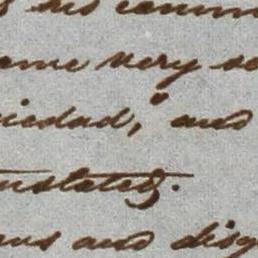 his comm
ome very so
iedad," and
nstates.
ous and disg